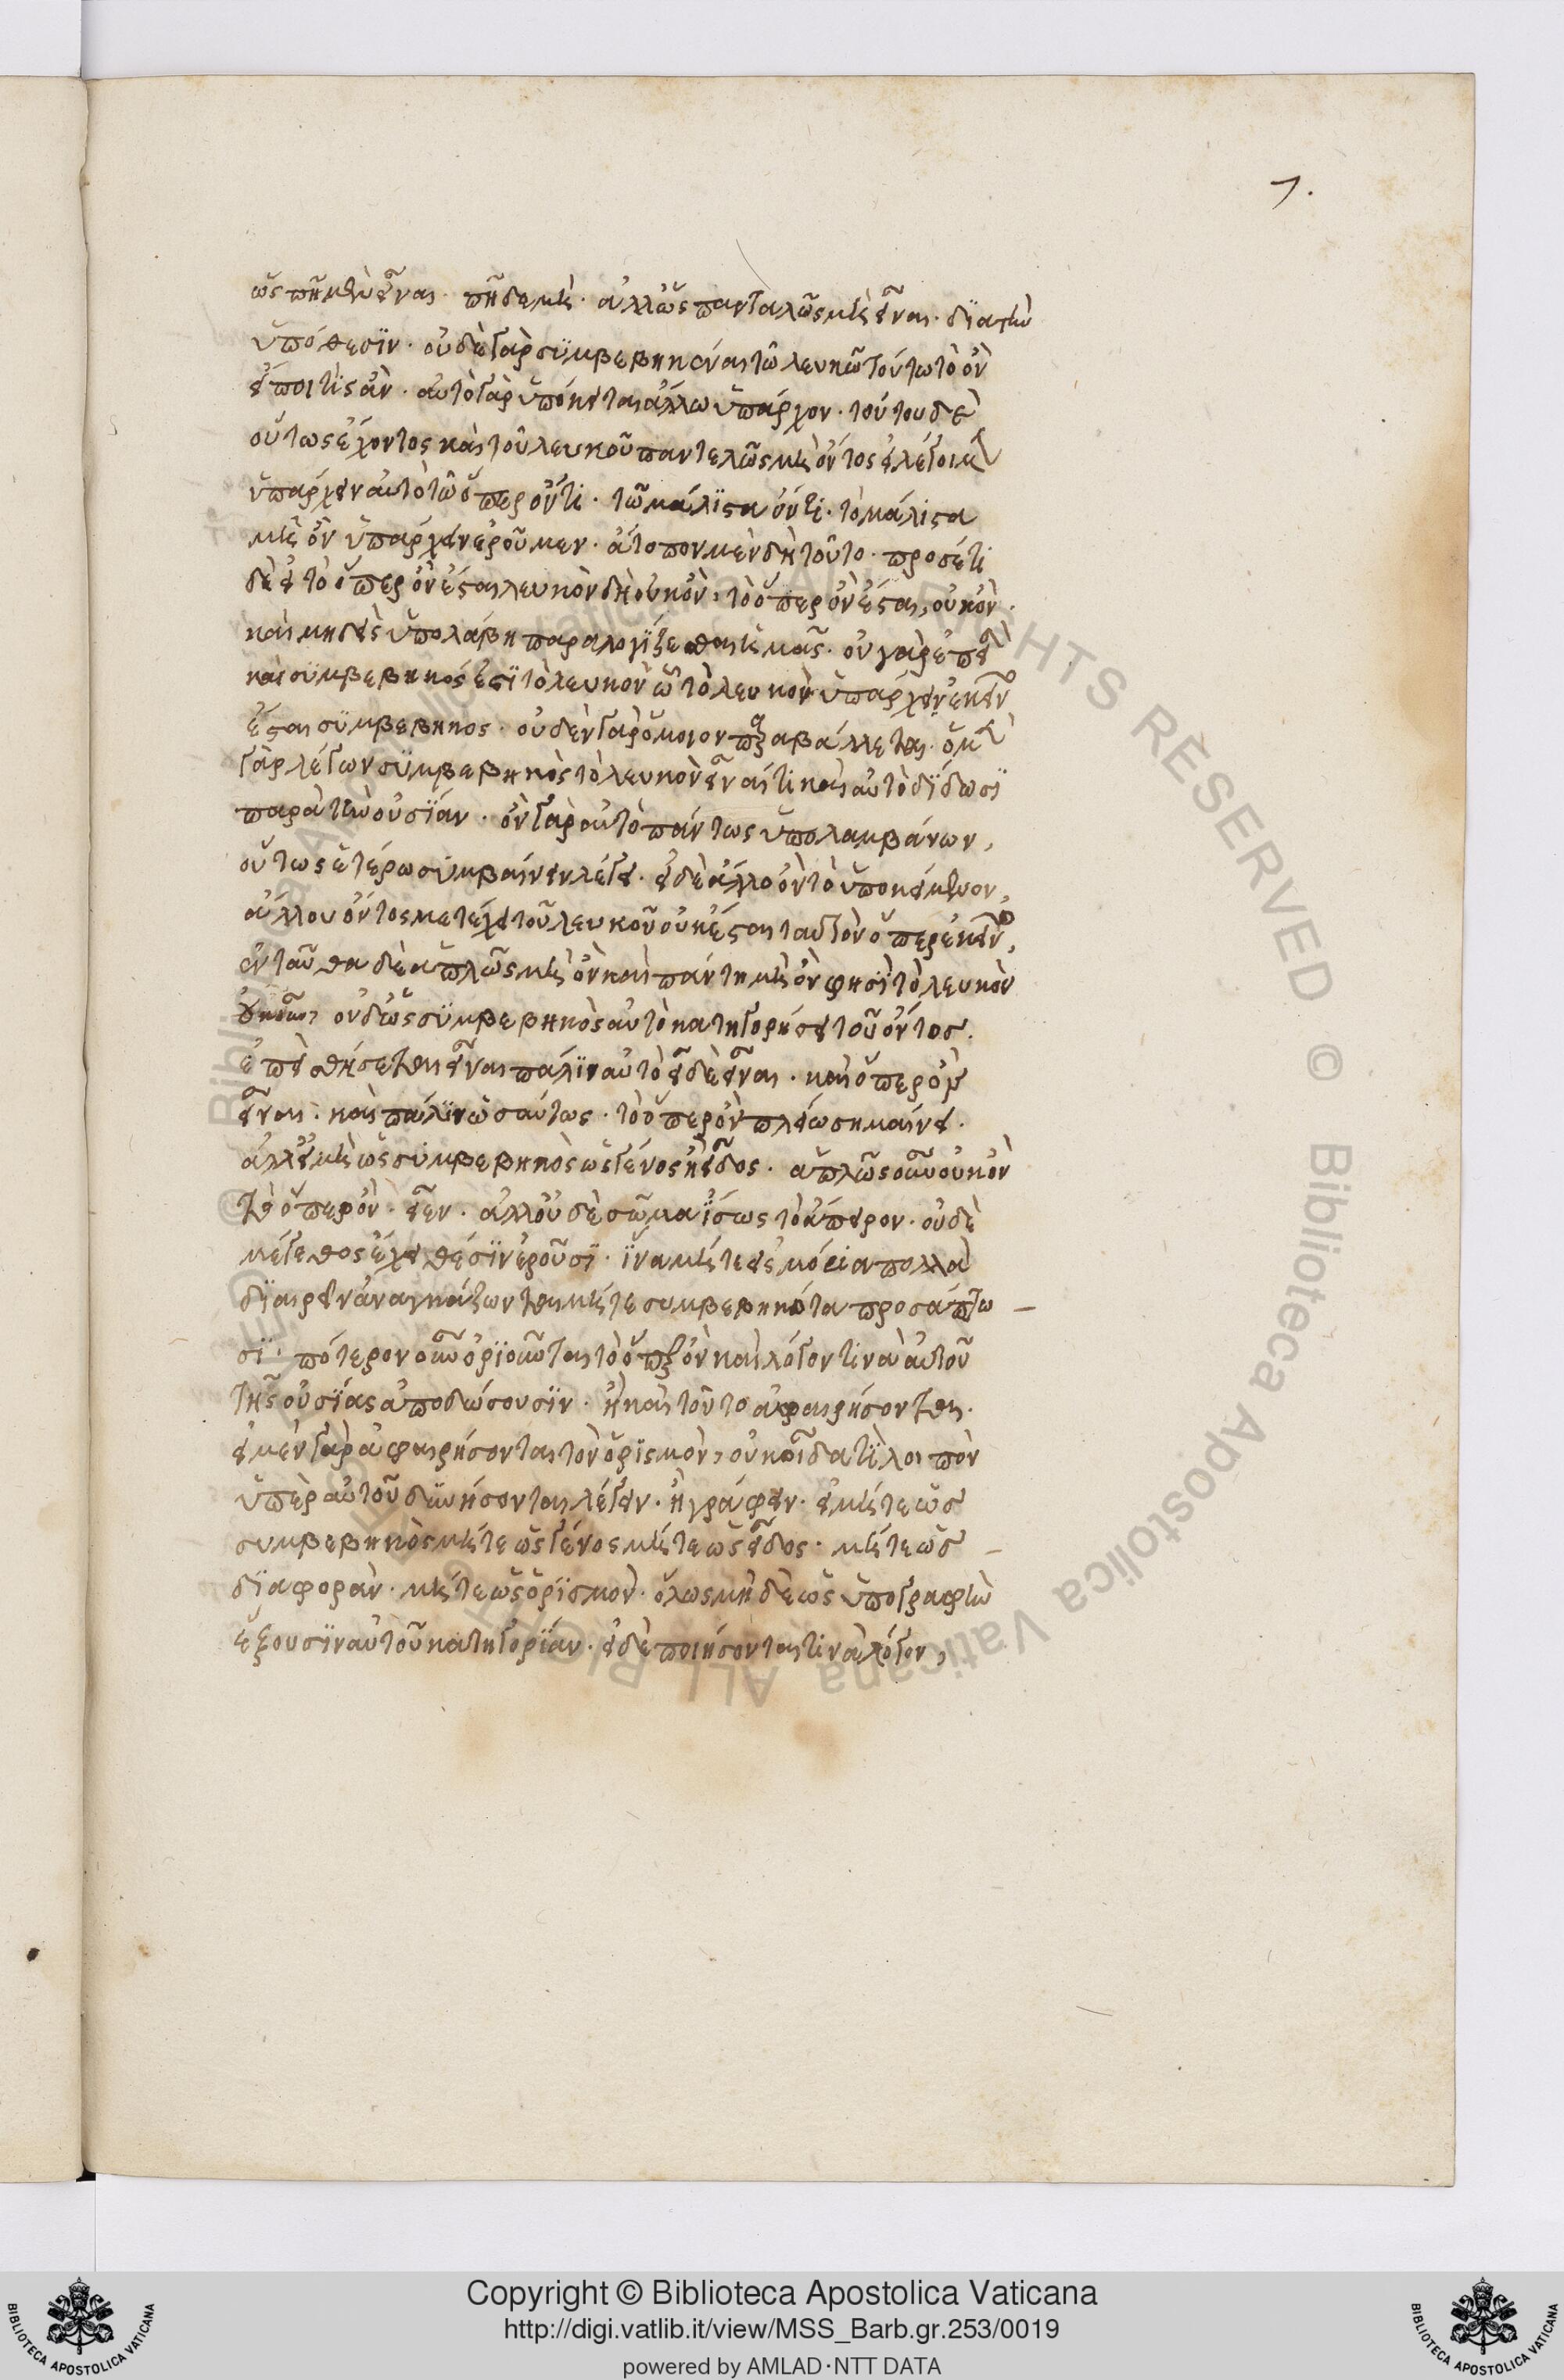 7.
ὡς πῆ μὲν εἶναι. πῆ δὲ μὴ. ἀλλ' ὡς πανταλῶς μὴ εἶναι. διὰ τὴν
ὑπόθεσιν. οὐδὲ γὰρ συμβεβηκέναι τῶ λευκῶ τούτω τὸ ὂν
εἴποι τὶς ἂν. αὐτὸ γὰρ ὑπόκειται ἄλλω ὑπάρχον. τούτου δὲ
οὕτως ἔχοντος καὶ τοῦ λευκοῦ παντελῶς μὴ ὄντος εἰ λέγοιμεν
ὑπάρχειν αὐτὸ τῶ ὅπερ ὄντι. τῶ μάλιστα ὄντι. τὸ μάλιστα
μὴ ὂν ὑπάρχειν ἐροῦμεν. ἄτοπον μὲν δὴ τοῦτο. προσέτι
δὲ εἰ τὸ ὅπερ ὂν ἔσται λευκὸν δὴ οὐκ ὂν, τὸ ὅπερ ὂν ἔσται, οὐκ ὂν.
καὶ μηδεὶς ὑπολάβη παραλογίζεσθαι ἡμᾶς. οὐ γὰρ ἐπεὶ
καὶ συμβεβηκός ἐστι τὸ λευκὸν ὧ τὸ λευκὸν ὑπάρχειν ἐκεῖν
ἔσται συμβεβηκος. οὐδὲν γὰρ ὅμοιον παραβάλλεται. ὁ μὲν
γὰρ λέγων συμβεβηκὸς τὸ λευκὸν εἶναί τι καὶ αὐτὸ δίδωσι
παρὰ τὴν οὐσίαν. ὂν γὰρ αὐτὸ πάντως ὑπολαμβάνων,
οὕτως ἑτέρω συμβαίνειν λέγει. εἰ δὲ ἄλλο ὂν τὸ ὑποκείμενον,
ἄλλου ὄντος μετέχει τοῦ λευκοῦ οὐκ ἔσται ταυτὸν ὅπερ ἐκεῖνο,
ἐνταῦθα δὲ ἁπλῶς μὴ ὂν καὶ πάντη μὴ ὂν φησὶ τὸ λευκὸν
οὐδ' ὡς συμβεβηκὸς αὐτὸ κατηγορήσει τοῦ ὄντος.
ἐπεὶ θήσεται εἶναι πάλιν αὐτὸ εἰ δὲ εἶναι. καὶ ὅπερ ὂν
εἶναι. καὶ πάλιν ὡσαύτως. τὸ ὅπερ ὂν πλείω σημαίνει.
ἀλλ' εἰ μὴ ὡς συμβεβηκὸς ὡς γένος ἢ εἶδος. ἁπλῶς οὖν οὐκ ὂν
τὸ ὅπερ ὂν. εἶεν. ἀλλ' οὐδὲ σῶμα ἴσως τὸ ἄπειρον. οὐδὲ
μέγεθος ἔχει θέσιν ἐροῦσι. ἵνα μήτε εἰς μόρια πολλὰ
διαιρεῖν ἀναγκάζωνται μήτε συμβεβηκότα προσάπτω-
σι. πότερον οὖν ὁριοῦνται τὸ ὅπερ ὂν καὶ λόγον τινὰ αὐτοῦ
τῆς οὐσίας ἀποδώσουσιν. ἢ καὶ τοῦτο ἀφαιρήσονται.
εἰ μὲν γὰρ ἀφαιρήσονται τὸν ὁρισμὸν, οὐκ οἶδα τί λοιπὸν
ὑπὲρ αὐτοῦ δυνήσονται λέγειν. ἢ γράφειν. εἰ μήτε ὡς
συμβεβηκὸς μήτε ὡς γένος μήτε ὡς εἶδος. μήτε ὡς
διαφορὰν. μήτε ὡς ὁρισμὸν. ὅλως μηδὲ ὡς ὑπογραφὴν
ἕξουσιν αὐτοῦ κατηγορίαν. εἰ δὲ ποιήσονται τινὰ λόγον,
© Biblioteca Apostolica Vaticana ALL RIGHTS RESERVED © Biblioteca Apostolica Vaticana ALL RIGHTS RESERVED
Copyright © Biblioteca Apostolica Vaticana
http://digi.vatlib.it/view/MSS_Barb.gr.253/0019
powered by AMLAD·NTT DATA
BIBLIOTECA APOSTOLICA VATICANA
BIBLIOTECA APOSTOLICA VATICANA